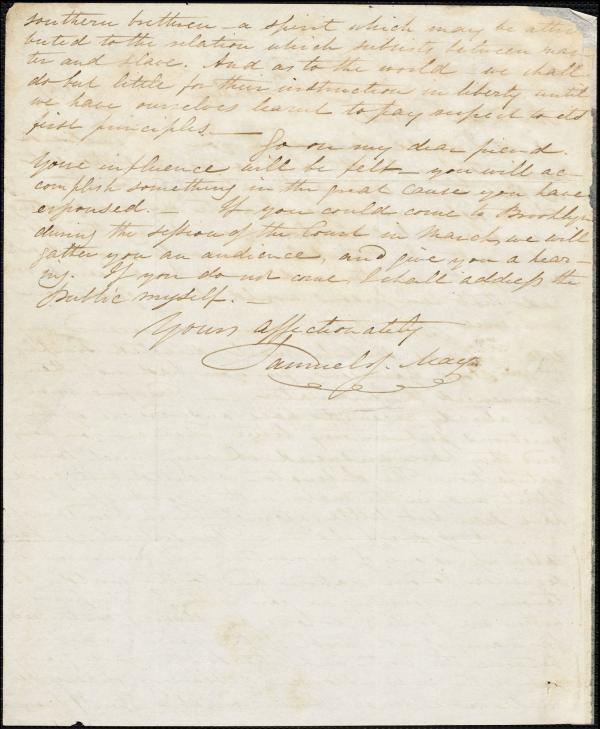 southern brethren – a spirit which may be attri
buted to the relation which subsists between mas-
ter and slave. And as to the world we shall
do but little for their instruction in liberty, until
we have ourselves learnt to pay respect to its
first principles. –
Go on my dear friend.
Your influence will be felt – you will ac-
complish something in the great cause you have
espoused. – If you could come to Brooklyn
during the session of the Court in March, we will
gather you an audience, and give you a hear-
ing. If you do not come, I shall address the
Public myself. –
Yours affectionately
Samuel J. May